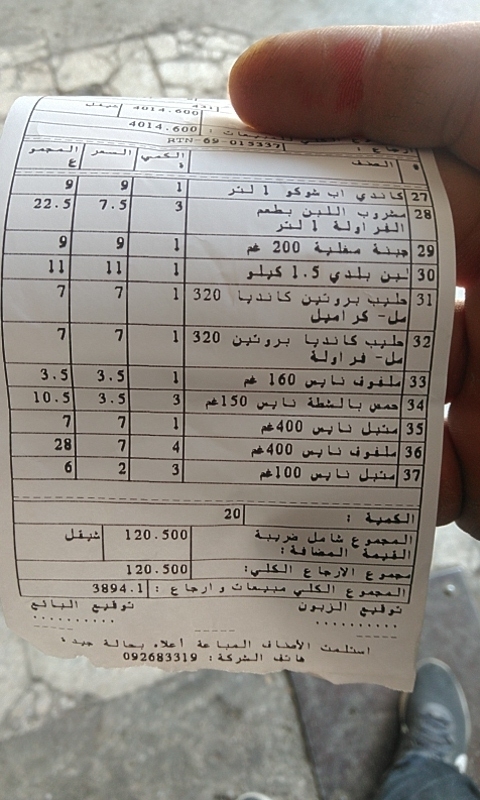 4014.600 شيقل
4014.600
ارجاع : RTN-69-013337
# الصنف الكمية السعر المجموع
27 كاندي اب شوكو 1 لتر 1 9 9
28 مشروب اللبن بطعم الفراولة 1 لتر 3 7.5 22.5
29 جبنة مغلية 200 غم 1 9 9
30 لبن بلدي 1.5 كيلو 1 11 11
31 حليب بروتين كانديا 320 مل- كراميل 1 7 7
32 حليب كانديا بروتين 320 مل- فراولة 1 7 7
33 ملفوف نايس 160 غم 1 3.5 3.5
34 حمص بالشطة نايس 150غم 3 3.5 10.5
35 متبل نايس 400غم 1 7 7
36 ملفوف نايس 400غم 4 7 28
37 متبل نايس 100غم 3 2 6
الكمية : 20
المجموع شامل ضريبة القيمة المضافة: 120.500 شيقل
مجموع الارجاع الكلي: 120.500
المجموع الكلي مبيعات و ارجاع : 3894.1
توقيع الزبون توقيع البائع
.......... ..........
استلمت الأصناف المباعة أعلاه بحالة جيدة
هاتف الشركة : 092683319